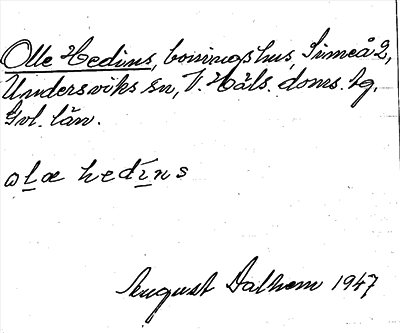 Olle Hedins, boningshus, Simeå 2,
Undersviks sn, V. Häls. doms. tg.
Gvl. län.
ola hedíns
August Dalhem 1947